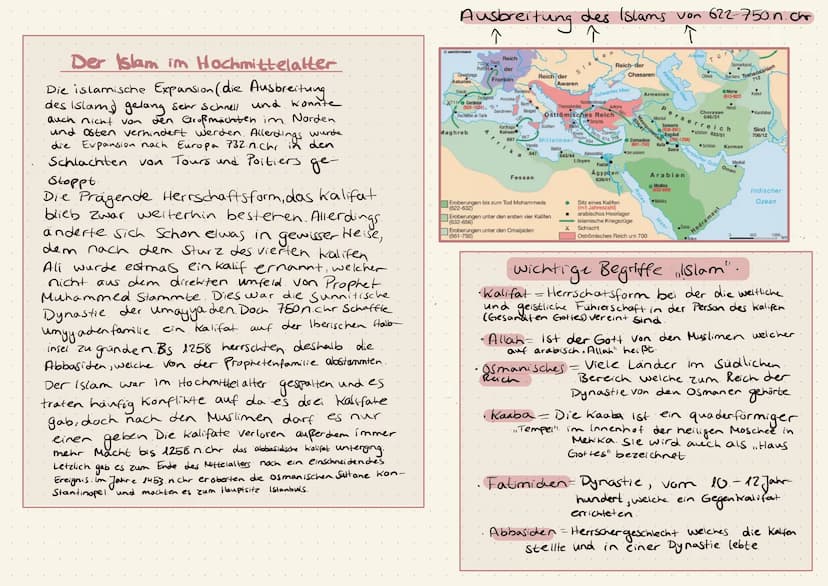 Ausbreitung des Islams von 622-750 n. chr
Der Islam im Hochmittelalter
Die islamische Expansion (die Ausbreitung
des Islams) gelang sehr schnell und konnte
auch nicht von den Großmächten im Norden
und Osten verhindert werden. Allerdings wurde
die Expansion nach Europa 732 n.chr in den
Schlachten von Tours und Poitiers ge-
stoppt.
Die Prägende Herrschaftsform, das Kalifat
blieb zwar weiterhin bestehen. Allerdings
änderte sich schon etwas in gewisser Weise,
denn nach dem Sturz des vierten Kalifen
Ali wurde erstmals ein Kalif ernannt, welcher
nicht aus dem direkten Umfeld von Prophet
Muhammed stammte. Dies war die Sunnitische
Dynastie der Umayyaden. Doch 750 n.chr schaffte
umyyadenfamilie ein Kalifat auf der Iberischen Halb-
insel zu gründen. Bis 1258 herrschten deshalb die
Abbasiden, welche von der Prophetenfamilie abstammten.
Der Islam war im Hochmittelalter gespalten und es
traten häufig Konflikte auf da es drei Kalifate
gab, doch nach den Muslimen darf es nur
einen geben Die Kalifate verloren außerdem immer
mehr Macht bis 1258 n.chr das abbasidische Kalifat unterging.
Letzlich gab es zum Ende des Mittelalters noch ein einschneidendes
Ereignis. Im Jahre 1453 n.chr eroberten die osmanischen Sultane Kon-
stantinopel und machten es zum Hauptsitz Istanbuls.
Reich
der
Franken
Reich der
Awaren
Reich der
Chasaren
Slawen
Armenien
Oströmisches Reich
Perserreich
Maghreb
Afrika
Mittelmeer
Libyen
Ägypten
Fessan
Arabien
Medina
Mekka
Hadramaut
Indischer
Ozean
Eroberungen bis zum Tod Mohammeds
(622-632)
Eroberungen unter den ersten vier Kalifen
(632-656)
Eroberungen unter den Omaijaden
(661-750)
Sitz eines Kalifen
(mit Jahreszahl)
arabisches Heerlager
islamische Kriegszüge
Schlacht
Oströmisches Reich um 700
wichtige Begriffe "Islam".
· Kalifat = Herrschaftsform bei der die weltliche
und geistliche Führerschaft in der Person des Kalifen
(Gesandten Gottes) vereint sind.
· Allah = Ist der Gott von den Muslimen welcher
auf arabisch "Allah" heißt
· Osmanisches = Viele Länder im Südlichen
Reich Bereich welche zum Reich der
Dynastie von den Osmaner gehörte
· Kaaba = Die Kaaba ist ein quaderförmiger
"Tempel" im Innenhof der heiligen Moschee in
Mekka. Sie wird auch als "Haus
Gottes" bezeichnet
· Fatimiden = Dynastie, vom 10.-12 Jahr-
hundert, welche ein Gegenkalifat
errichteten.
· Abbasiden = Herrschergeschlecht welches die Kalifen
stellte und in einer Dynastie lebte